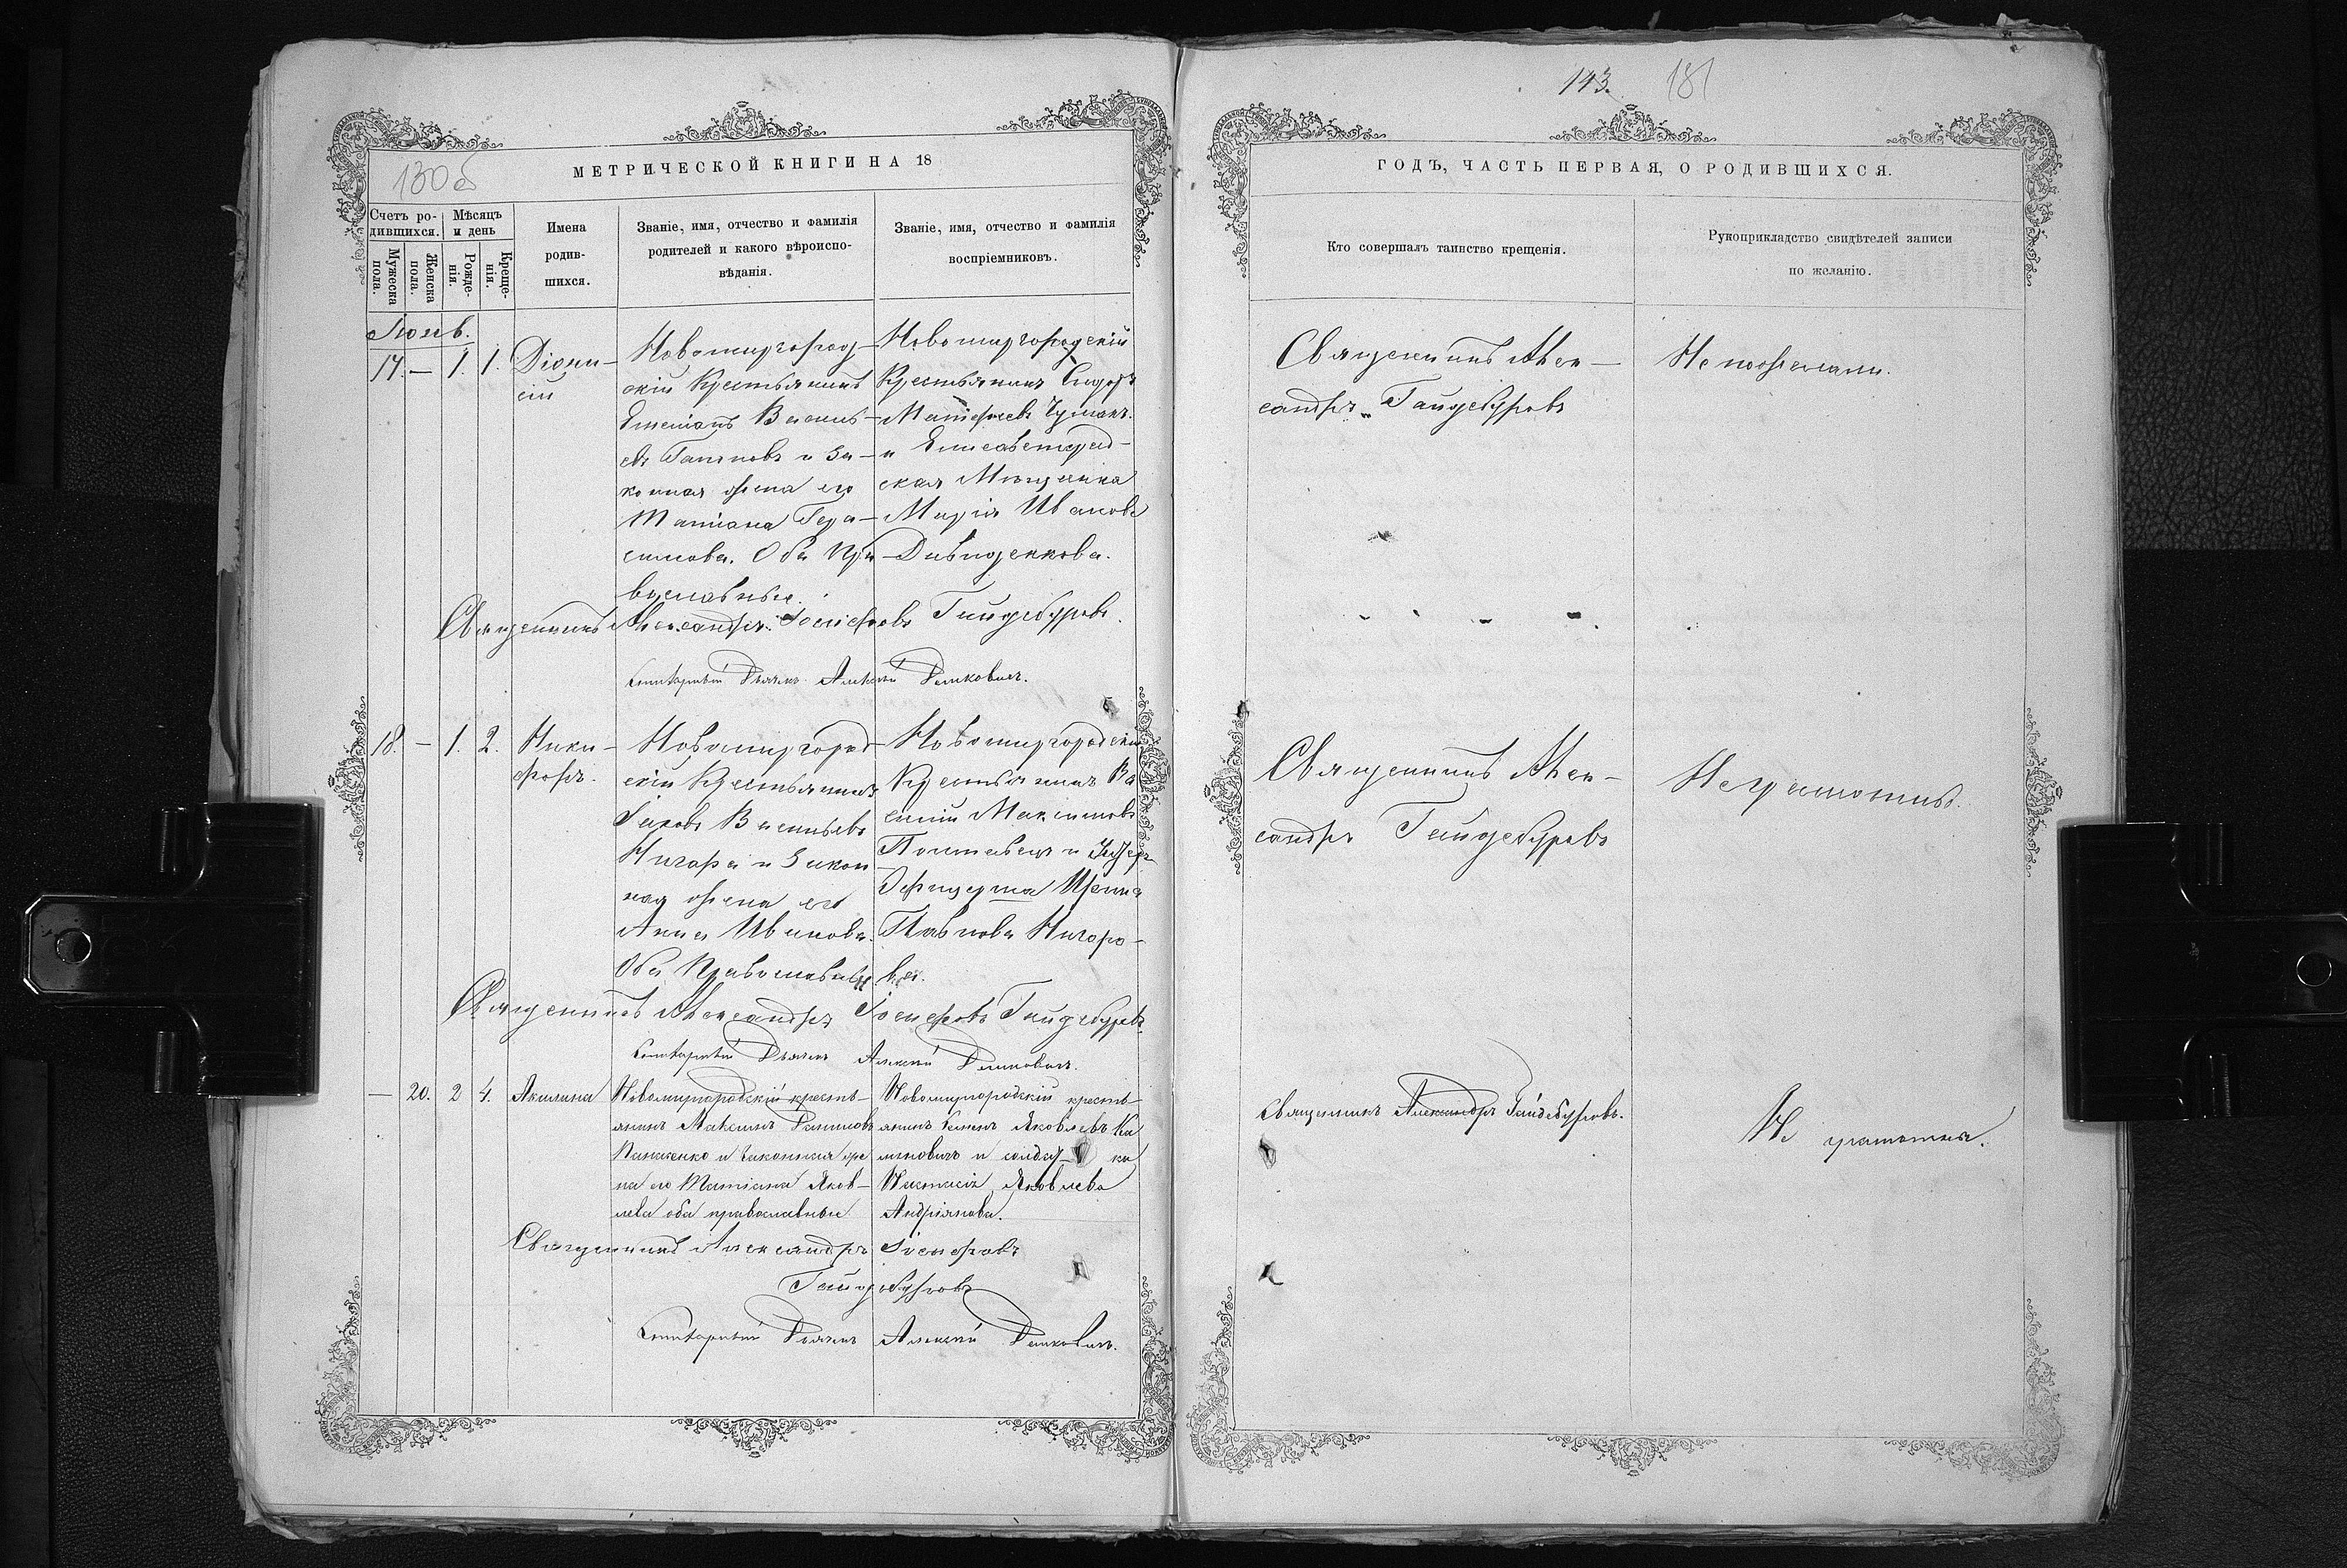 143. 181
130об
МЕТРИЧЕСКОЙ КНИГИ НА 18
Счетъ ро-
дившихся.
Мужеска
пола.
Женска
пола.
Мѣсяцъ
и день
Рожде-
нія.
Креще-
нія.
Имена
родив-
шихся.
Званіе, имя, отчество и фамилія
родителей и какого вѣроиспо-
вѣданія.
Званіе, имя, отчество и фамилія
воспріемниковъ.
17. — 1. 1.
Діони-
сій
Новомиргород-
скій Крестьянинъ
Емеліанъ Василь-
евъ и За-
конная жена его
Татіана Гера-
симова. Оба Пра-
вославные.
Новомиргородскій
Крестьянинъ Сидоръ
Матѳеевъ Чумакъ.
и Елисаветград-
ская Мѣщанка
Марія Иванова
Давиденкова.
Священникъ Александръ Іосифовъ Гайдебуровъ.
Дьячекъ Алексій
18. — 1. 2.
Ники-
форъ.
Новомиргород-
скій Крестьянинъ
Іаковъ Васильевъ
и Закон
ная жена его
Анна Иванова.
Оба Православные
Новомиргородскій
Крестьянинъ Ва
силій Максимовъ
Полтавецъ и Унтеръ-
Офицерша
Павлова
ва.
Священникъ Александръ Іосифовъ Гайдебуровъ.
Дьячекъ Алексій
— 20. 2 4.
Акилина
Новомиргородскій кресть-
янинъ Максимъ Даниловъ
и законная же
на его Татіана Яков-
лева оба православные
Новомиргородскій кресть-
янинъ Яковлевъ Ка
линовичъ и солдат ка
Настасія Яковлева
Андріянова.
Священникъ Александръ Іосифовъ
Гайдебуровъ
Дьячекъ Алексій
ГОДЪ, ЧАСТЬ ПЕРВАЯ, О РОДИВШИХСЯ.
Кто совершалъ таинство крещенія.
Рукоприкладство свидѣтелей записи
по желанію.
Священникъ Алек-
сандръ Гайдебуровъ
Не пожелали.
Священникъ Алек-
сандръ Гайдебуровъ
Неграмотны.
Священникъ Александръ Гайдебуровъ.
Не грамотны.